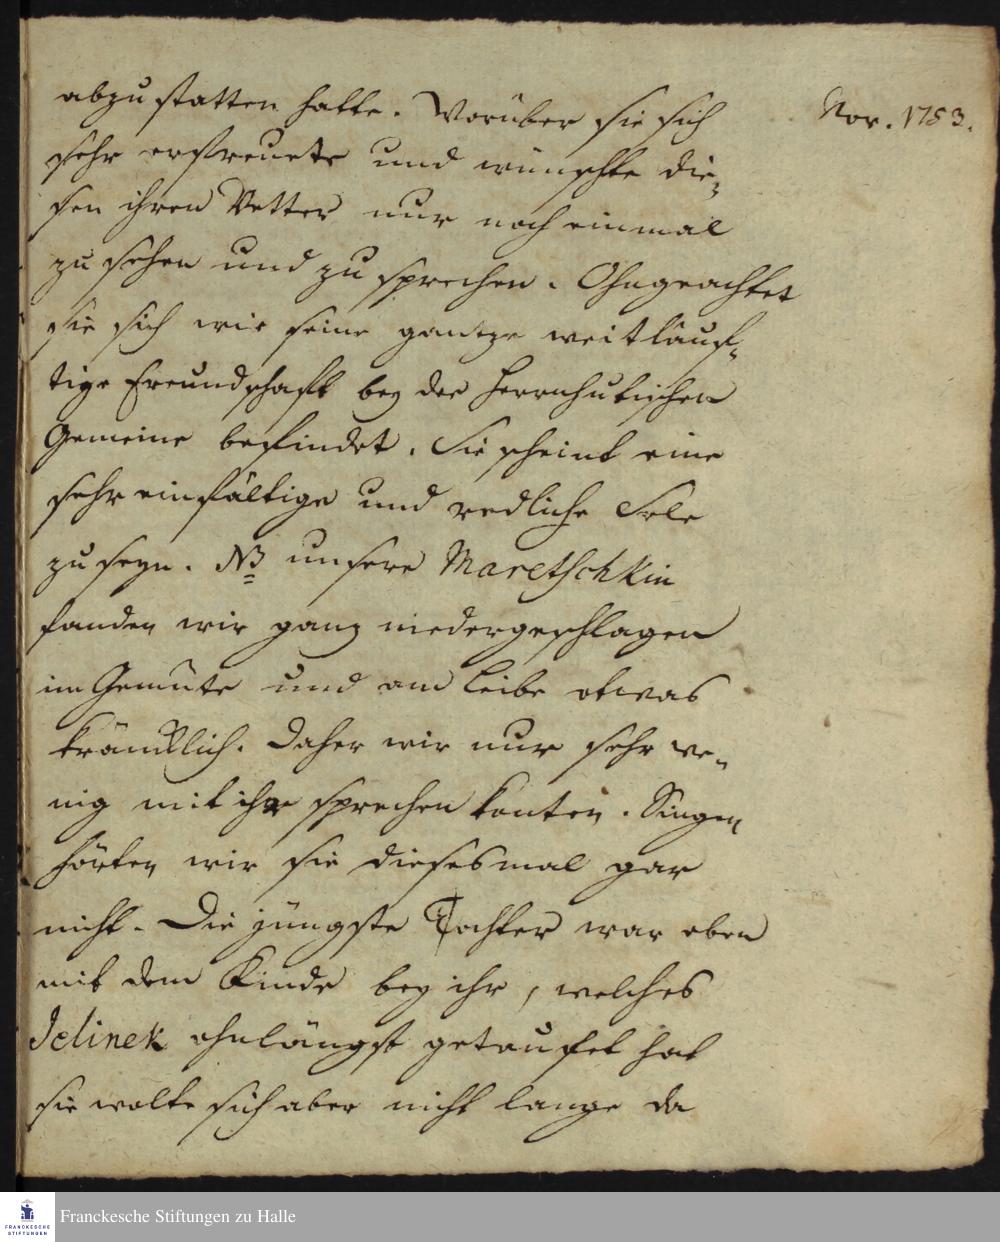 Nov. 1753.
abzustatten hatte. Worüber sie sich
sehr erfreuete und wünschte die-
sen ihren Vetter nur noch einmal
zu sehen und zu sprechen. Ohngeachtet
sie sich wie seine gantze weitläuf-
tige Freundschaft bey der Herrnhutischen
Gemeine befindet. Sie scheint eine
sehr einfältige und redliche Sele
zu seyn. NB unsere Maretschkin
fanden wir ganz niedergeschlagen
im Gemüte und am Leibe etwas
kräncklich. Daher wir nur sehr we-
nig mit ihr sprechen konten. Singen
hörten wir sie diesesmal gar
nicht. Die jüngste Tochter war eben
mit dem Kinde bey ihr, welches
Jelinek ohnlängst getaufet hat
sie wolte sich aber nicht lange da
Franckesche Stiftungen zu Halle
FRANCKESCHE
STIFTUNGEN